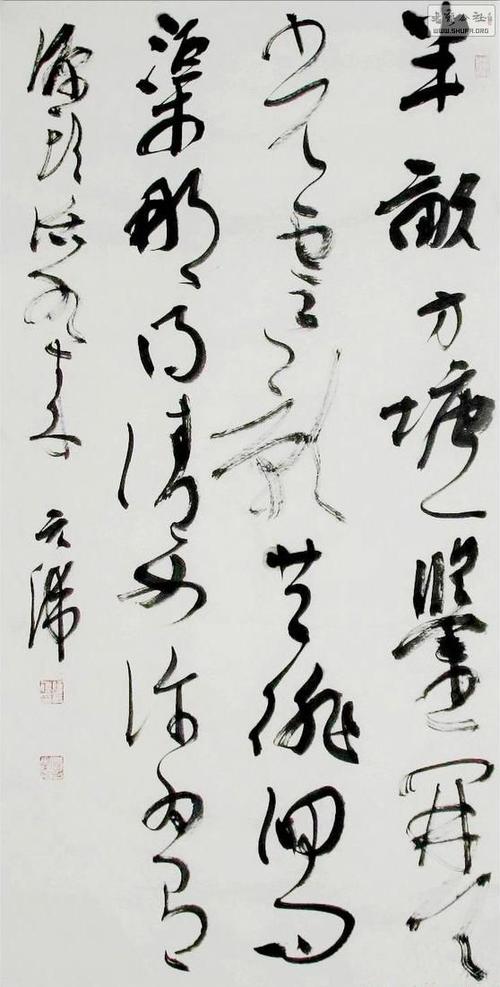 书艺公社
WWW.SHUFA.ORG
半畝方塘一鑒開天
光雲影共徘徊问
渠那得清如許為有
源頭活水来